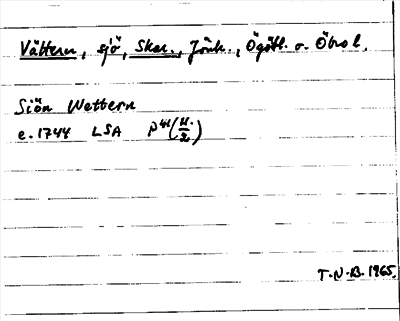 Vättern, sjö, Skar., Jönk., Ögötl. o. Öbrol.
Siön Wettern
e. 1744 LSA P41(11/2)
T.N.B. 1965.